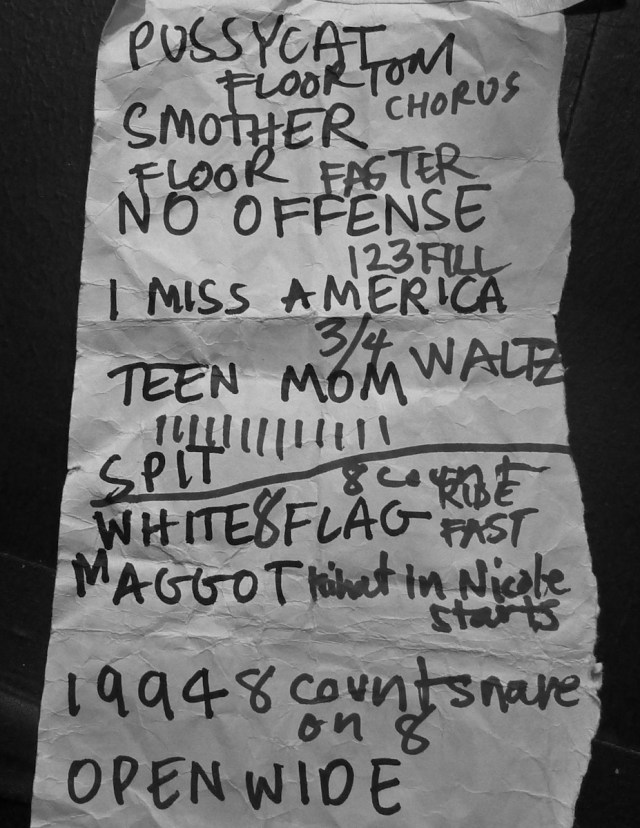 PUSSYCAT
FLOOR TOM
CHORUS
SMOTHER
FLOOR FASTER
NO OFFENSE
123 FILL
I MISS AMERICA
3/4 WALTZ
TEEN MOM
SPIT
8 count
RIDE
WHITE 8 FLAG FAST
MAGGOT in Nicole
starts
1994 8 count snare
on 8
OPEN WIDE